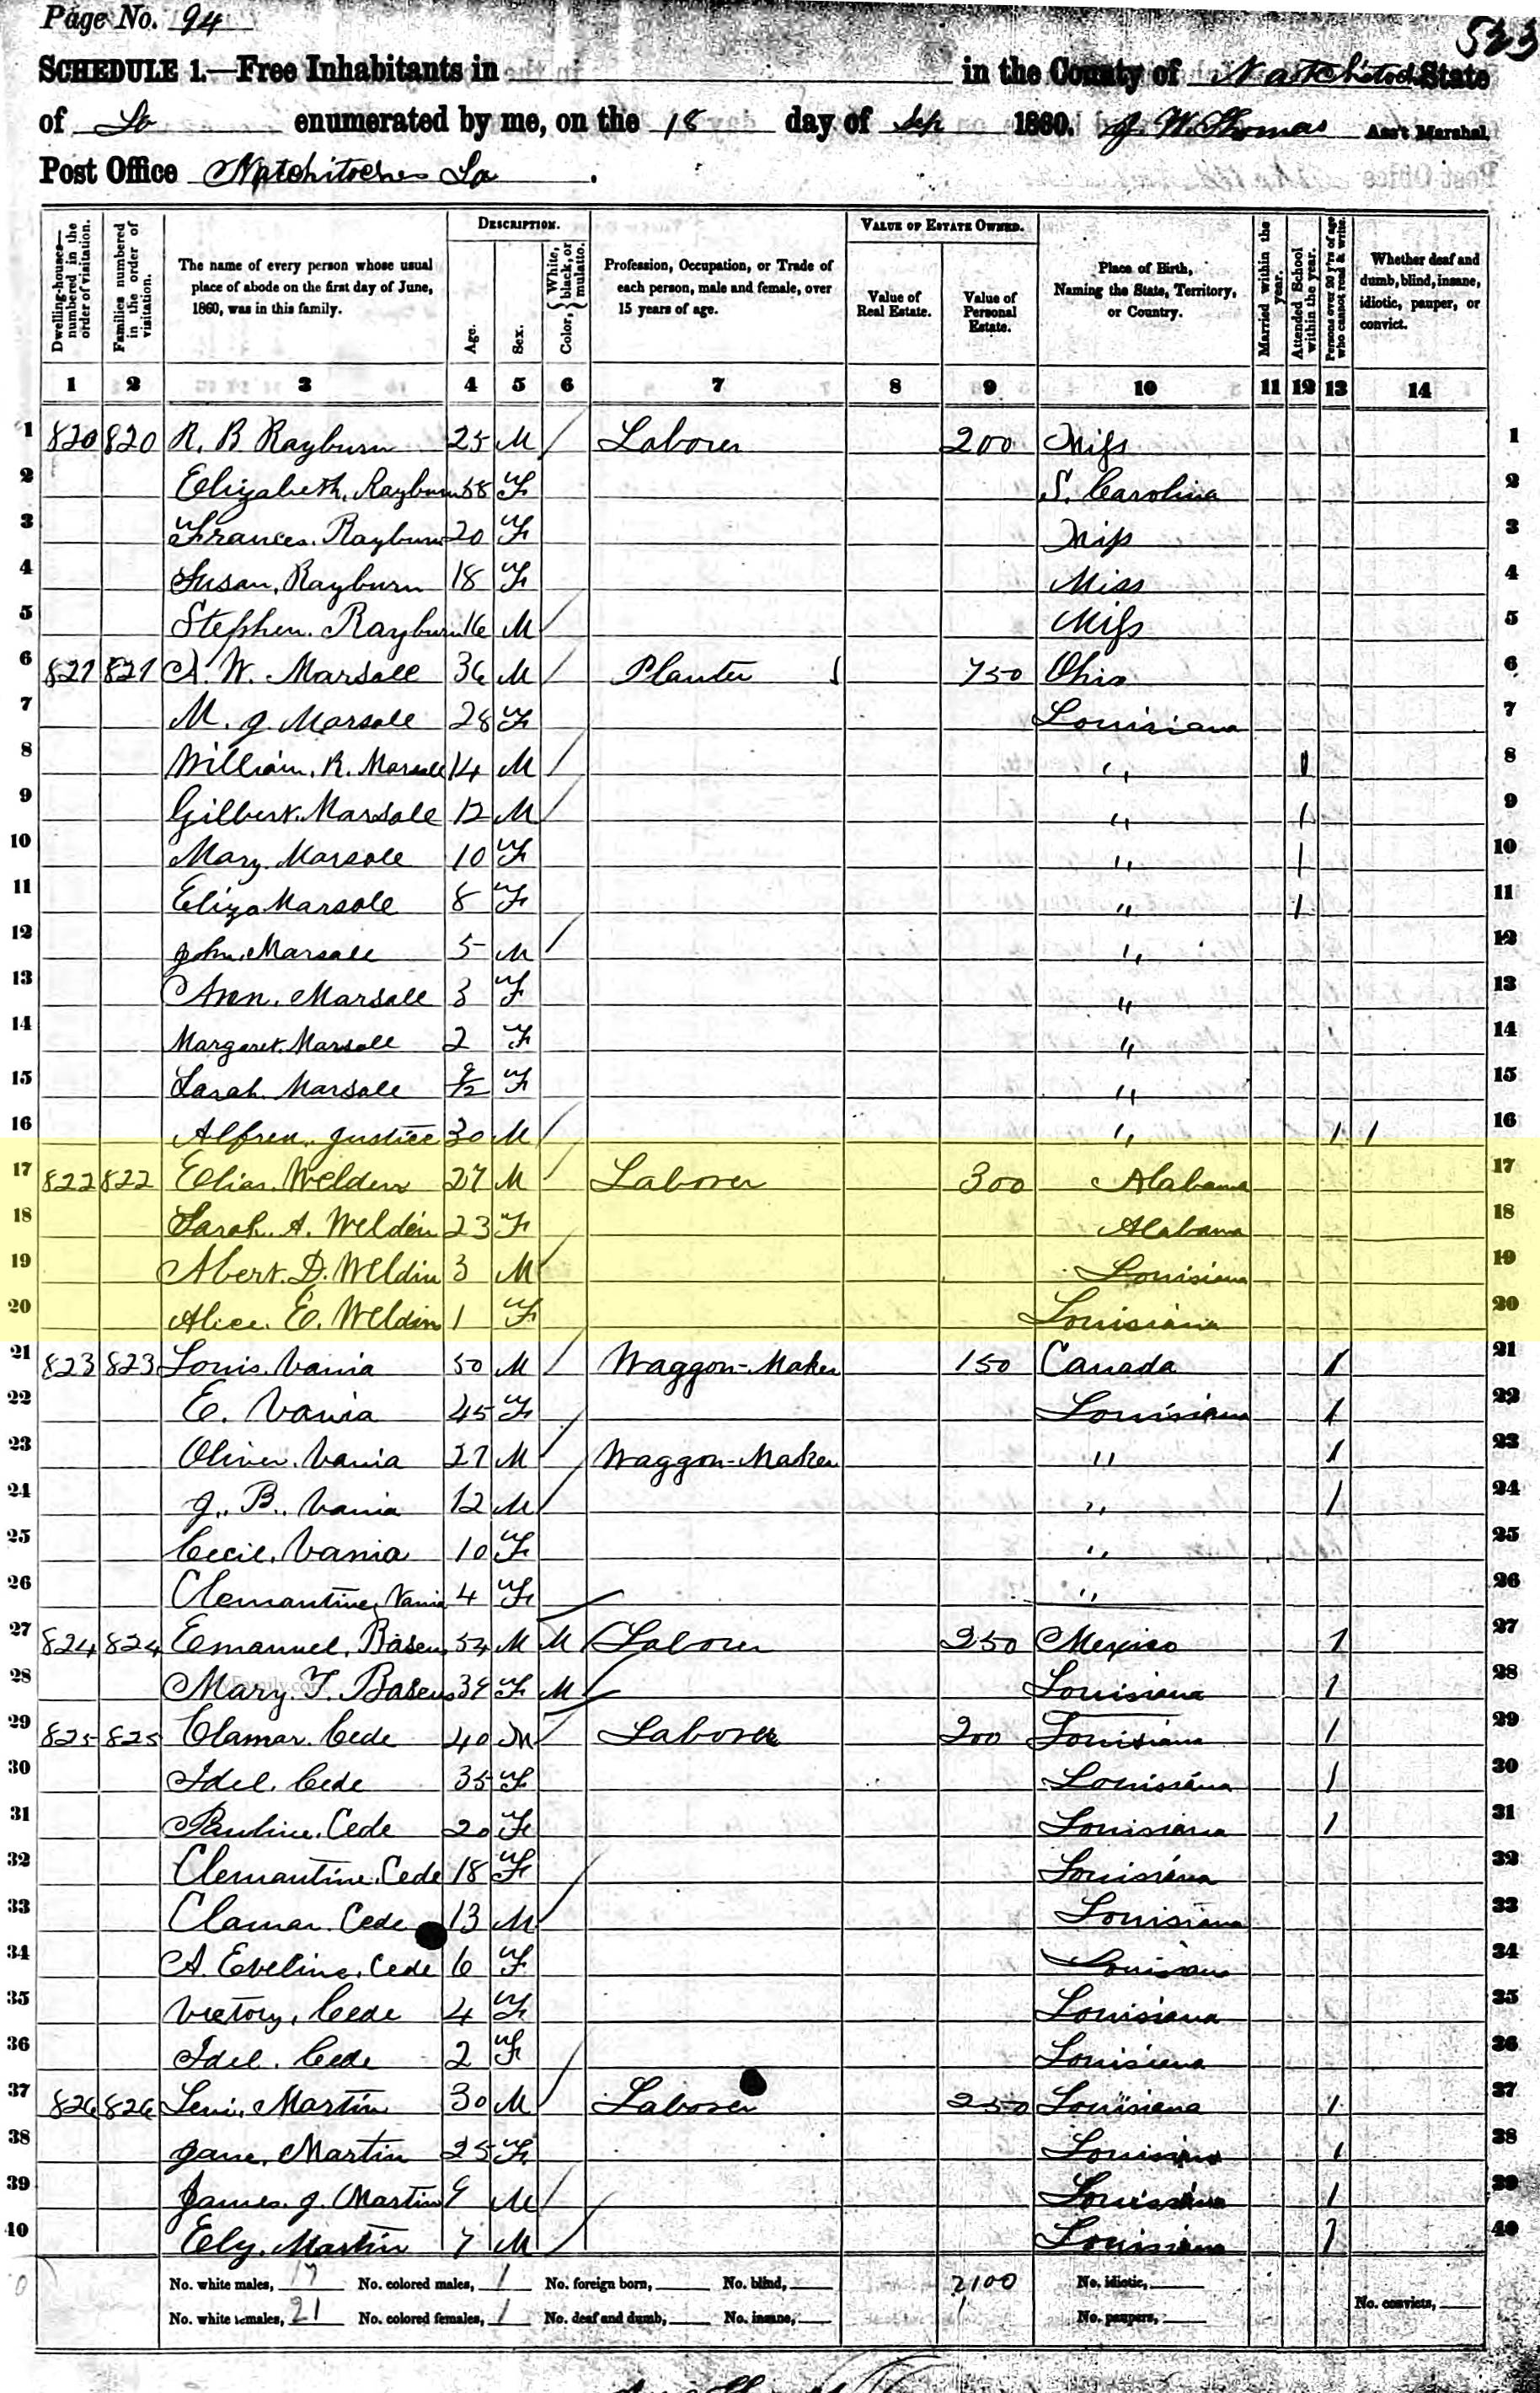 Page No. 94
523
SCHEDULE 1.—Free Inhabitants in in the County of Natchitoch State
of La enumerated by me, on the 18 day of Sep 1860. J. W. Thomas Ass't Marshal.
Post Office Natchitoches La.
Dwelling-houses—numbered in the order of visitation.
Families numbered in the order of visitation.
The name of every person whose usual place of abode on the first day of June, 1860, was in this family.
DESCRIPTION.
Age.
Sex.
Color, {White, black, or mulatto.
Profession, Occupation, or Trade of each person, male and female, over 15 years of age.
VALUE OF ESTATE OWNED.
Value of Real Estate.
Value of Personal Estate.
Place of Birth, Naming the State, Territory, or Country.
Married within the year.
Attended School within the year.
Persons over 20 y'rs of age who cannot read & write.
Whether deaf and dumb, blind, insane, idiotic, pauper, or convict.
1 2 3 4 5 6 7 8 9 10 11 12 13 14
1 820 820 R. B. Rayburn 25 M / Laborer 200 Miss 1
2 Elizabeth, Rayburn 58 F S. Carolina 2
3 Frances. Rayburn 20 F Miss 3
4 Susan, Rayburn 18 F Miss 4
5 Stephen. Rayburn 16 M / Miss 5
6 821 821 A. W. Marsall 36 M / Planter 750 Ohio 6
7 M. J. Marsall 28 F Louisiana 7
8 William. R. Marsall 14 M / " 1 8
9 Gilbert. Marsall 12 M / " 1 9
10 Mary. Marsall 10 F " 1 10
11 Eliza Marsall 8 F " 1 11
12 John. Marsall 5 M / " 12
13 Ann. Marsall 3 F " 13
14 Margaret. Marsall 2 F " 14
15 Sarah. Marsall 9/12 F " 15
16 Alfred. Justice 30 M / " 1 1 16
17 822 822 Elias. Welden 27 M / Laborer 300 Alabama 17
18 Sarah. A. Weldin 23 F Alabama 18
19 Abert. D. Weldin 3 M / Louisiana 19
20 Alice. E. Weldin 1 F Louisiana 20
21 823 823 Louis. Vania 50 M / Waggon-Maker 150 Canada 1 21
22 E. Vania 45 F Louisiana 1 22
23 Oliver. Vania 27 M / Waggon-Maker " 1 23
24 J. B. Vania 12 M / " 1 24
25 Cecil. Vania 10 F " 25
26 Clemantine, Vania 4 F " 26
27 824 824 Emanuel. Basen 54 M M Laborer 250 Mexico 1 27
28 Mary. F. Basen 39 F M Louisiana 1 28
29 825 825 Clamar. Cede 40 M / Laborer 200 Louisiana 1 29
30 Idel. Cede 35 F Louisiana 1 30
31 Pauline. Cede 20 F Louisiana 1 31
32 Clemantine. Cede 18 F Louisiana 32
33 Clamar. Cede 13 M / Louisiana 33
34 A. Eveline. Cede 6 F Louisiana 34
35 Victory. Cede 4 F Louisiana 35
36 Idel. Cede 2 F Louisiana 36
37 826 826 Levi. Martin 30 M / Laborer 250 Louisiana 1 37
38 Jane. Martin 25 F Louisiana 1 38
39 James. J. Martin 9 M / Louisiana 1 39
40 Ely. Martin 7 M / Louisiana 1 40
No. white males, 17 No. colored males, 1 No. foreign born, No. blind, 2100 No. idiotic,
No. white females, 21 No. colored females, 1 No. deaf and dumb, No. insane, No. paupers, No. convicts,